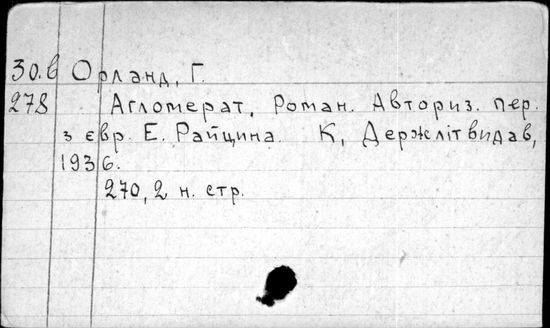 30.в Орланд, Г.
278 Агломерат. Роман. Авториз. пер.
з євр. Е. Райцина. К, Держлітвидав,
1936.
270, 2 н. стр.